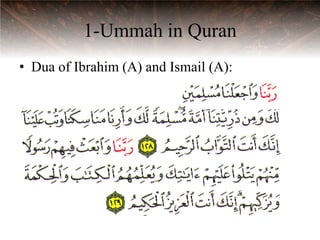 1-Ummah in Quran
• Dua of Ibrahim (A) and Ismail (A):
رَبَّنَا وَاجْعَلْنَا مُسْلِمَيْنِ
لَكَ وَمِن ذُرِّيَّتِنَا أُمَّةً مُّسْلِمَةً لَّكَ وَأَرِنَا مَنَاسِكَنَا وَتُبْ عَلَيْنَا
إِنَّكَ أَنتَ التَّوَّابُ الرَّحِيمُ ١٢٨ رَبَّنَا وَابْعَثْ فِيهِمْ رَسُولًا
مِّنْهُمْ يَتْلُوا عَلَيْهِمْ ءَايَاتِكَ وَيُعَلِّمُهُمُ الْكِتَابَ وَالْحِكْمَةَ
وَيُزَكِّيهِمْ إِنَّكَ أَنتَ الْعَزِيزُ الْحَكِيمُ ١٢٩